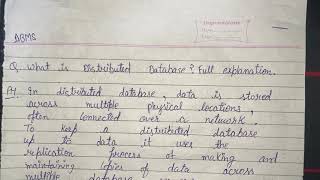 DBMS
Q. What is Distributed Database? Full explanation.
A) In distributed database, data is stored
across multiple physical locations,
often connected over a network.
To keep a distributed database
up to data it uses the
replication process of making and
maintaining copies of data across
multiple database